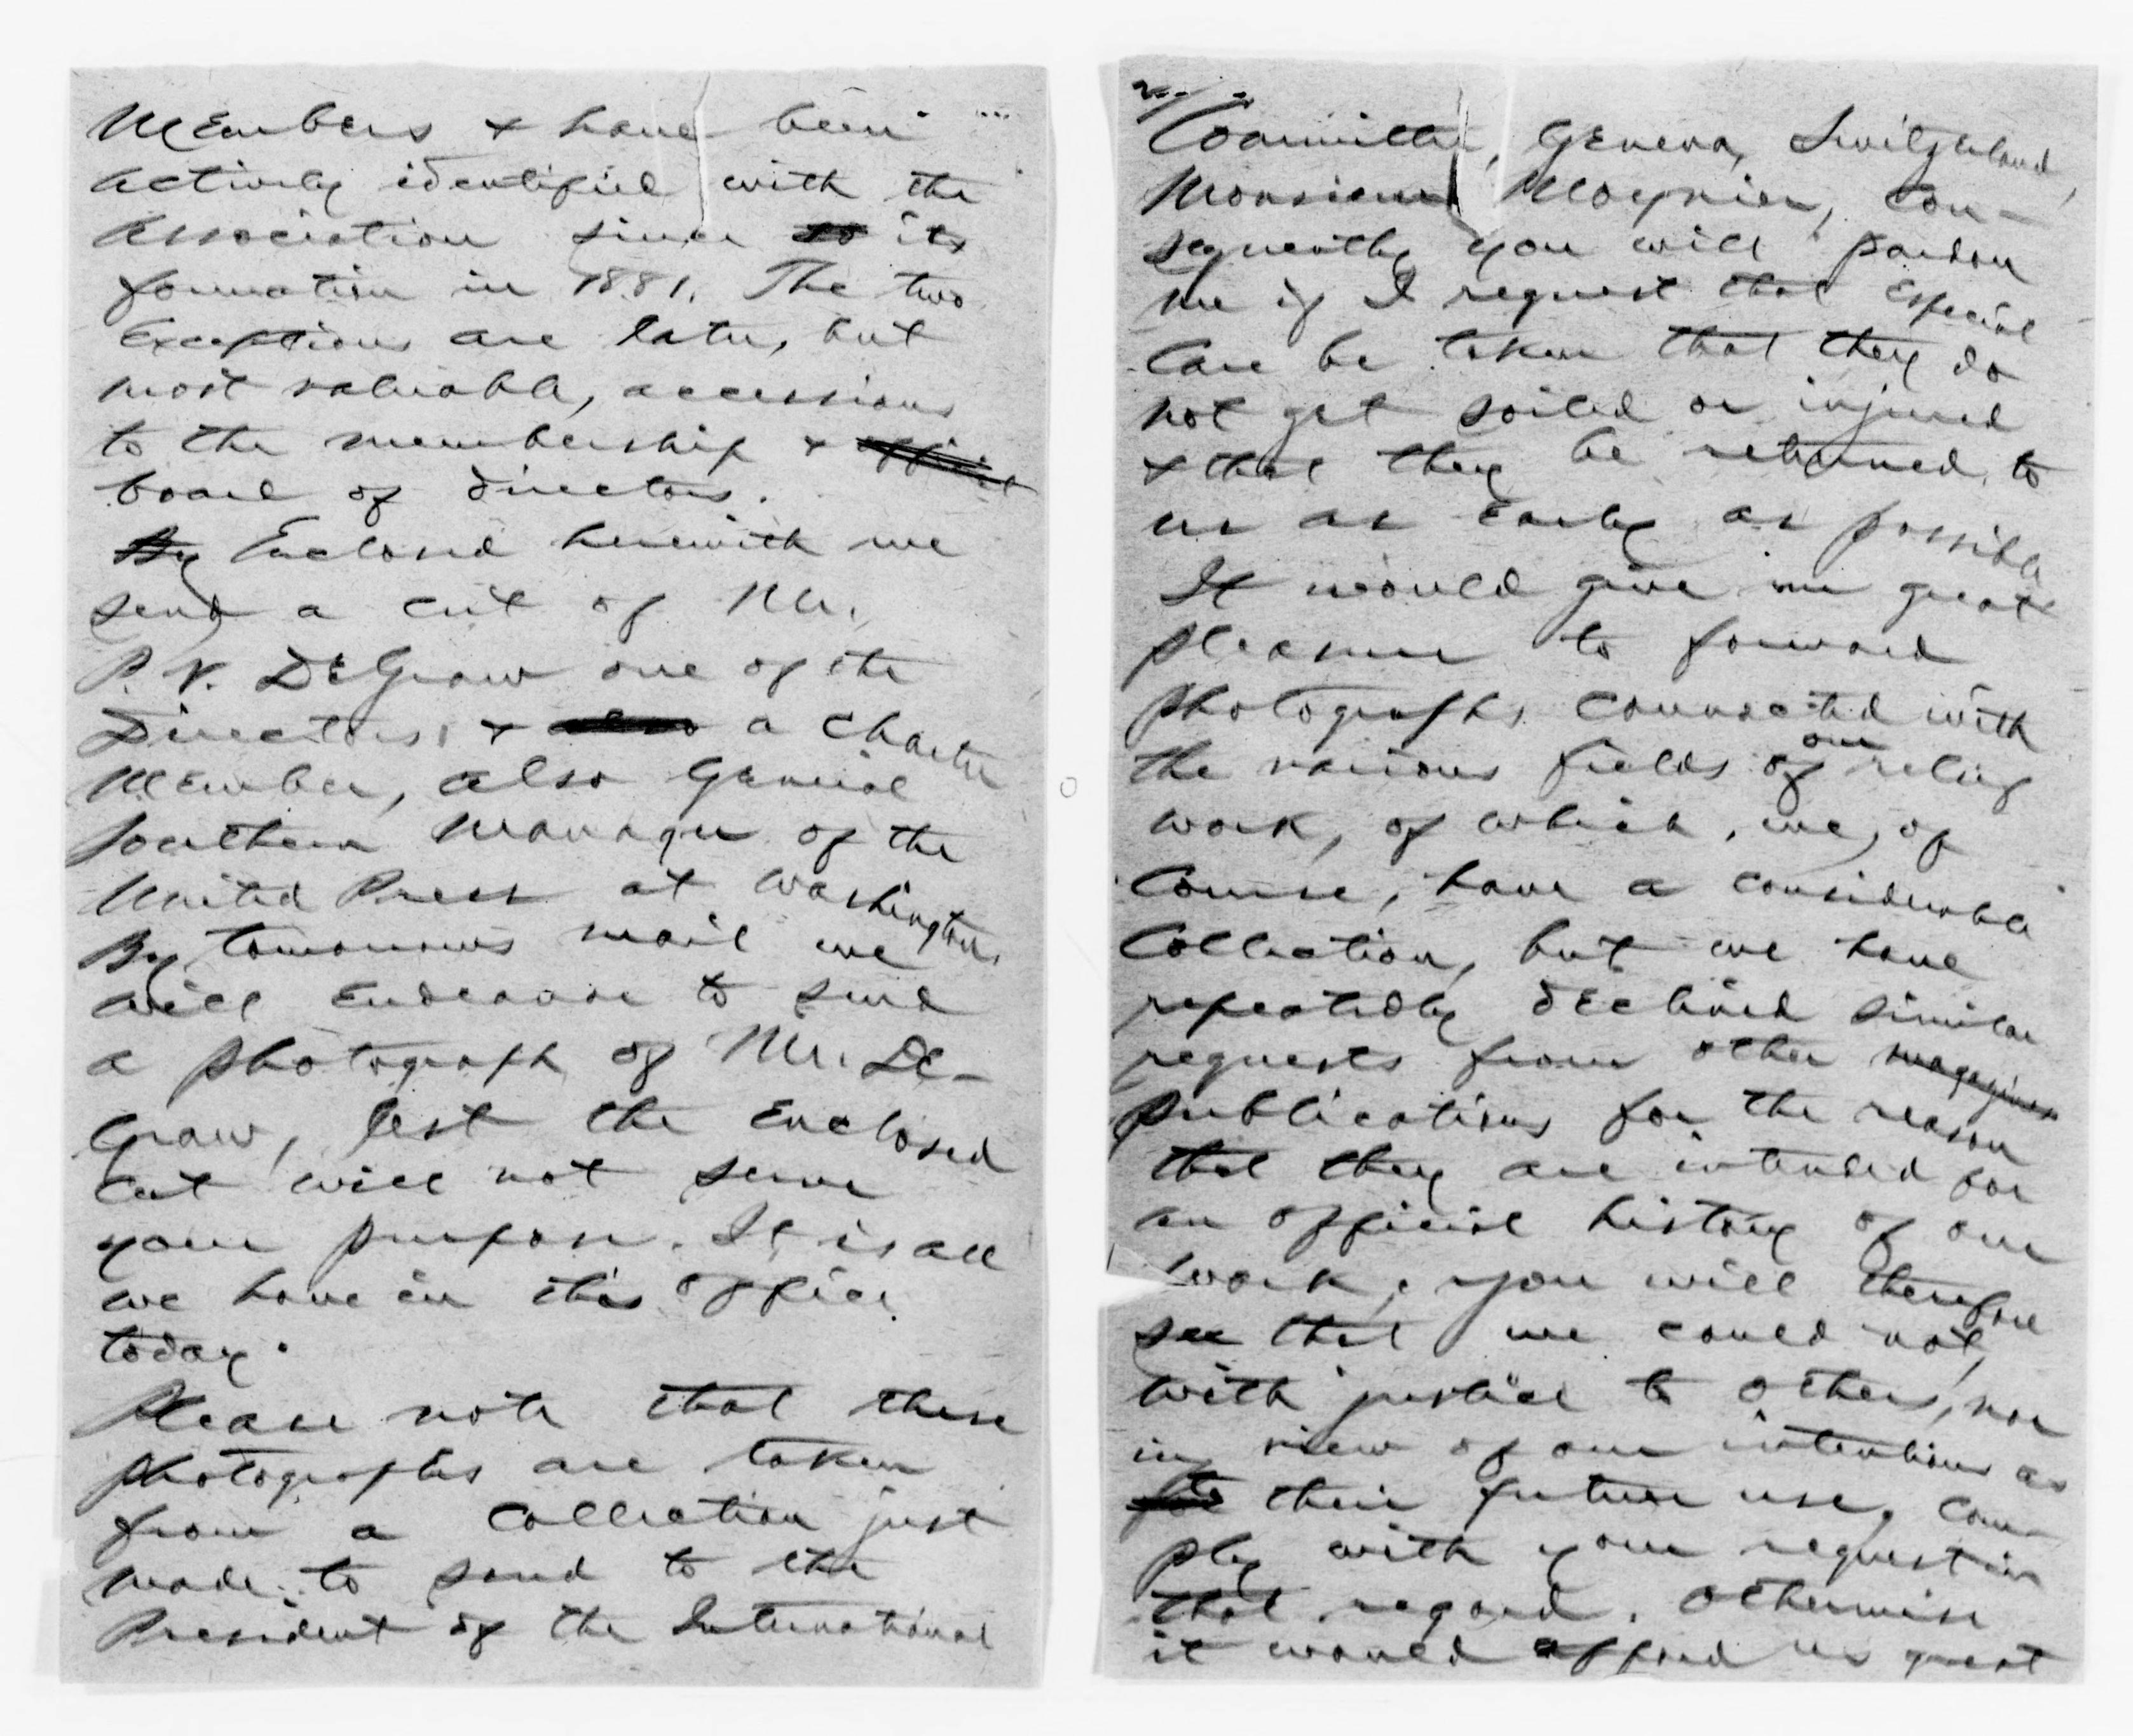 Members & have been
actively identified with the
Association since so its
formation in 1881. The two
exceptions are later, but
most valuable, accessions
to the membership &
board of directors.
By Enclosed herewith we
send a cut of Mr.
P. V. DeGraw one of the
Directors, & also a charter
Member, also General
Southern Manager of the
United Press at Washington.
By tomorrows mail we
will endeavor to send
a photograph of Mr. De-
Graw, lest the enclosed
cut will not serve
your purpose. It is all
we have in this office
today.
Please note that these
photographs are taken
from a collection just
made to send to the
President of the International
Committee, Geneva, Switzerland,
Monsieur Moynier, con-
sequently you will pardon
me if I request that especial
care be taken that they do
not get soiled or injured
& that they be returned to
us as early as possible
It would give me great
pleasure to forward
photographs connected with
the various fields of our relief
work, of which, we, of
course, have a considerable
collection, but we have
repeatedly declined similar
requests from other magazines
publications for the reason
that they are intended for
an official history of our
work, you will therefore
see that we could not,
with justice to others, nor
in view of our intentions as
for their future use, com-
ply with your request in
that regard. Otherwise
it would afford us great